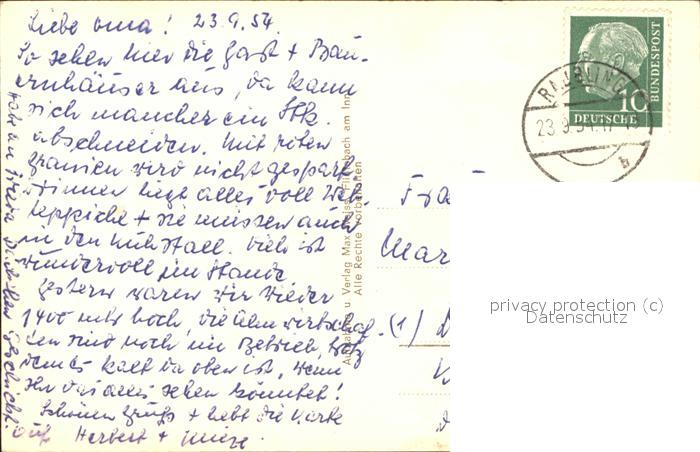 Liebe Oma! 23.9.54.
So sehen hier die Gast + Bau-
ernhäuser aus, da kann
sich mancher ein Stk.
abschneiden. Mit roten
Granien wird nicht gespart
drinnen liegt alles voll
teppiche + sie müssen auch
in den Kuhstall. Vieh ist
wundervoll im Stande
Gestern waren wir wieder
1400 mtr hoch, die Almwirtschaf-
ten sind noch im Betrieb, trotz
dem es kalt da oben ist, wenn
Ihr das alles sehen könntet!
Schönen Gruß + hebt die Karte
auf Herbert +
Aufnahme u. Verlag Max Flintsbach am Inn
Alle Rechte vorbehalten
BUNDESPOST
10
DEUTSCHE
RAUBLING
23.9.54.17
b
Mar
(1)
privacy protection (c)
Datenschutz